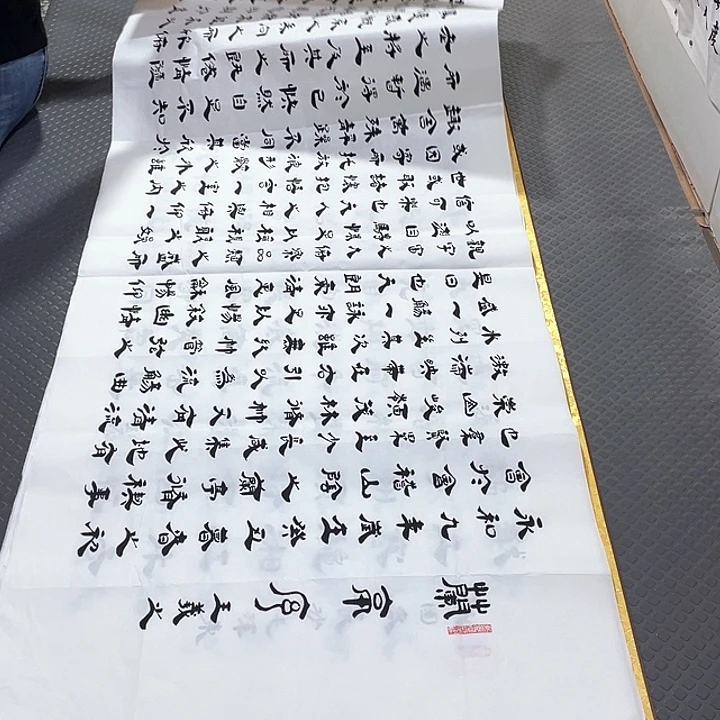 蘭亭序
王羲之
永和九年歲在癸丑暮春之初
會於會稽山陰之蘭亭脩禊事
也群賢畢至少長咸集此地有
崇山峻領茂林脩竹又有清流
激湍映帶左右引以為流觴曲
水列坐其次雖無絲竹管弦之
盛一觴一詠亦足以暢敘幽情
是日也天朗氣清惠風和暢仰
觀宇宙之大俯察品類之盛所
以遊目騁懷足以極視聽之娛
信可樂也夫人之相與俯仰一
世或取諸懷抱悟言一室之內
或因寄所託放浪形骸之外雖
趣舍萬殊靜躁不同當其欣於
所遇暫得於己快然自足不知
老之將至及其所之既倦情隨